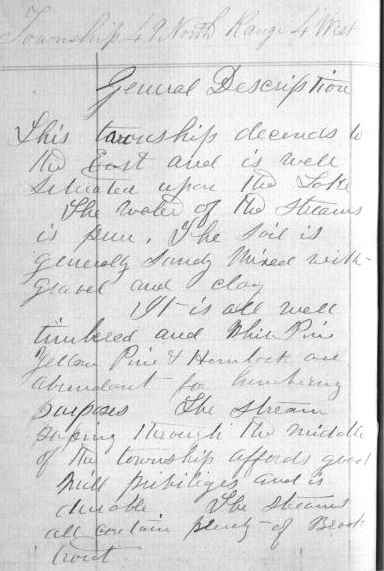 Township 49 North Range 4 West
General Description
This township decends to
the East and is well
situated upon the Lake
The water of the streams
is pure. The soil is
generally Sandy Mixed with
gravel and clay
It is all well
timbered and White Pine
Yellow Pine & Hemlock are
abundant for lumbering
purposes The stream
through the middle
of the township affords good
Mill privileges and is
durable The streams
all contain plenty of Brook
trout